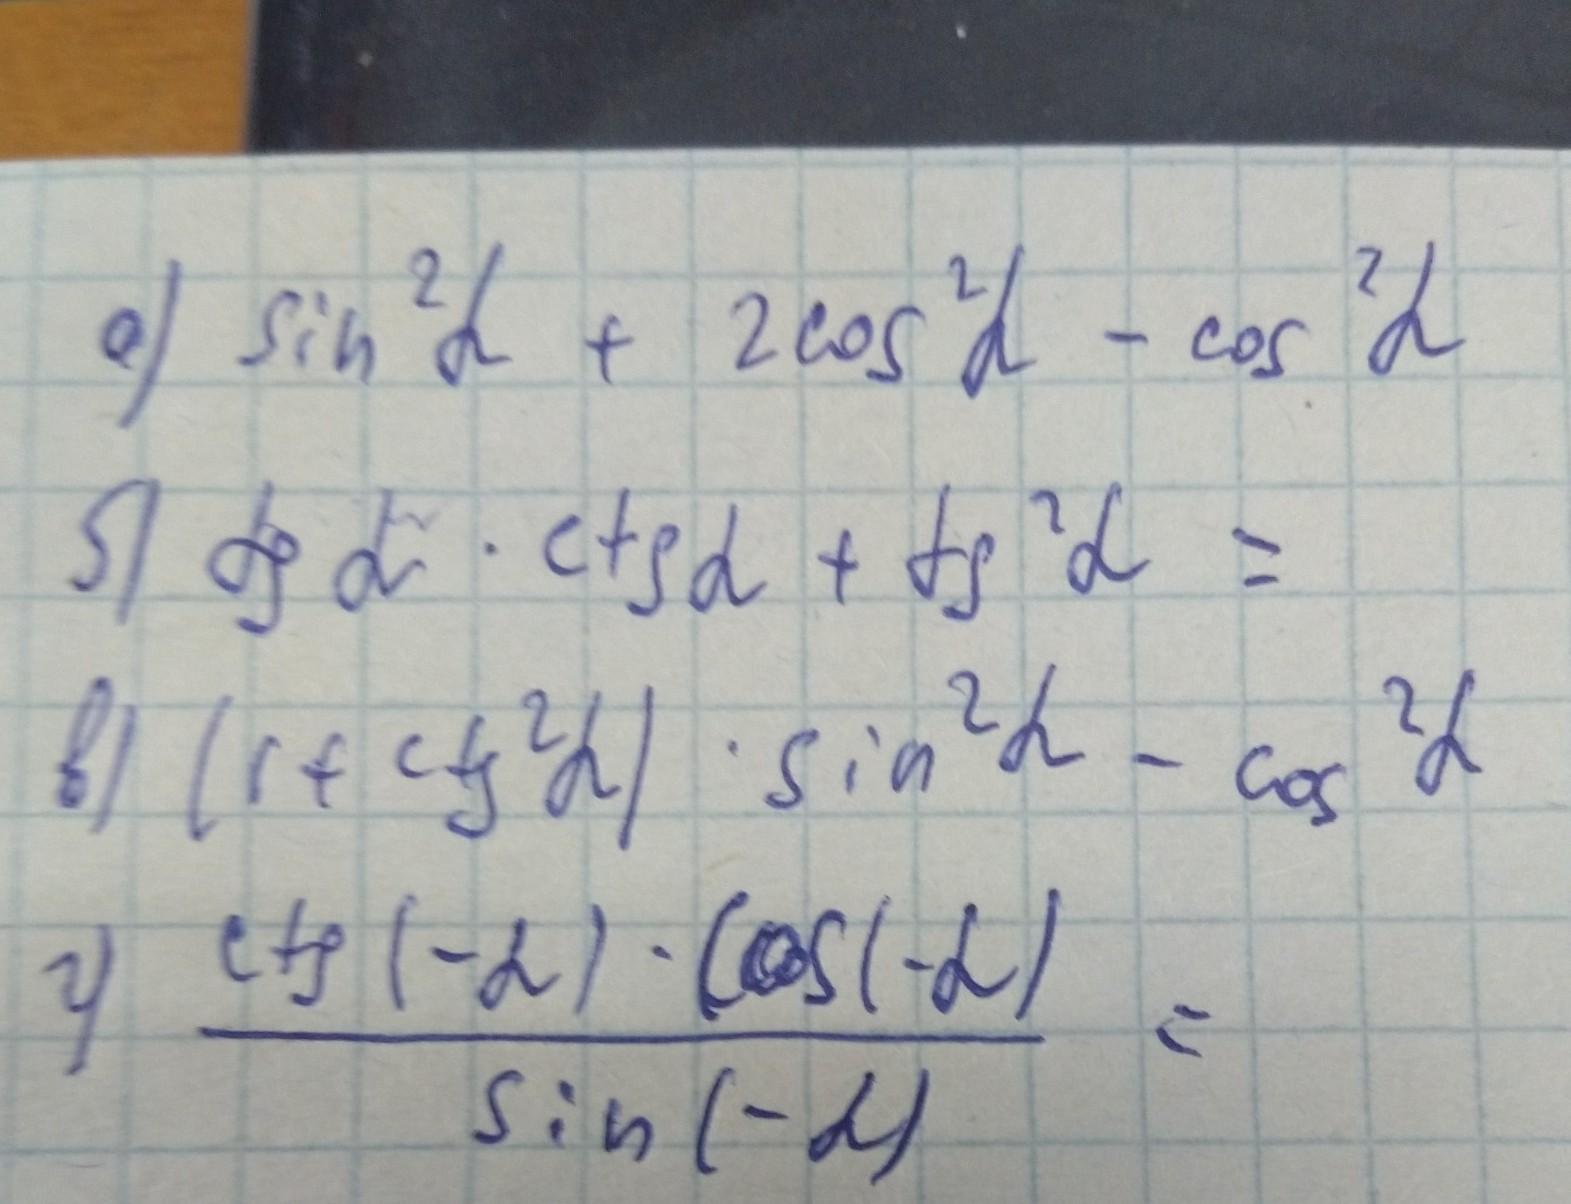 а) sin²α + 2cos²α - cos²α
б) tg α · ctg α + tg²α =
в) (1 + ctg²α) · sin²α - cos²α
г) ctg(-α) · cos(-α)
sin(-α) =